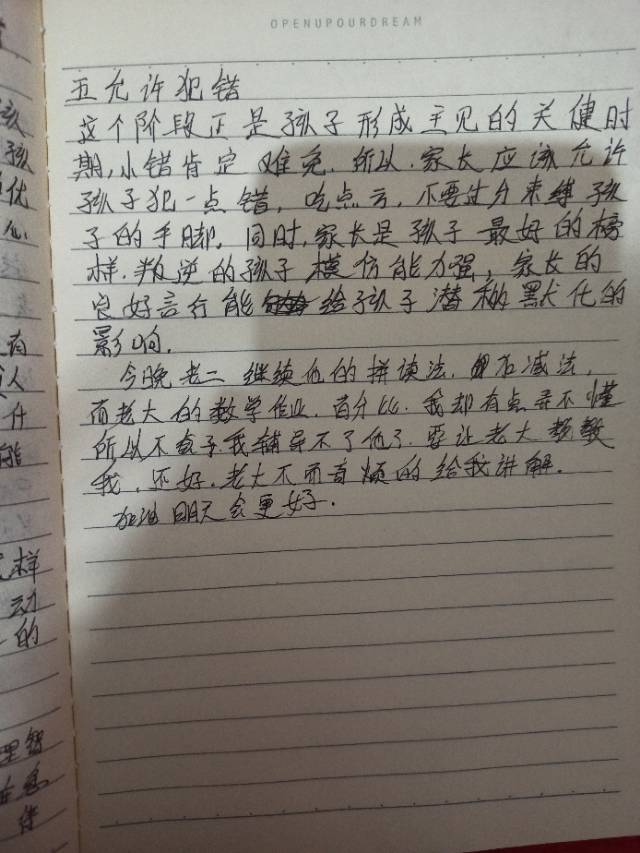 OPENUPOURDREAM
五允许犯错
这个阶段正是孩子形成主见的关健时
期,小错肯定难免.所以.家长应该允许
孩子犯一点错,吃点亏,不要过分束缚孩
子的手脚.同时,家长是孩子最好的榜
样.叛逆的孩子模仿能力强,家长的
良好言行能给孩子潜移默化的
影响.
今晚老二继续他的拼读法,减法,
而老大的数学作业.百分比.我却有点弄不懂
所以不孩子.我辅导不了他了.要让老大教教
我.还好.老大不而音烦的给我讲解.
加油明天会更好.
孩
孩
优
有
人
什
能
样
动
的
理智